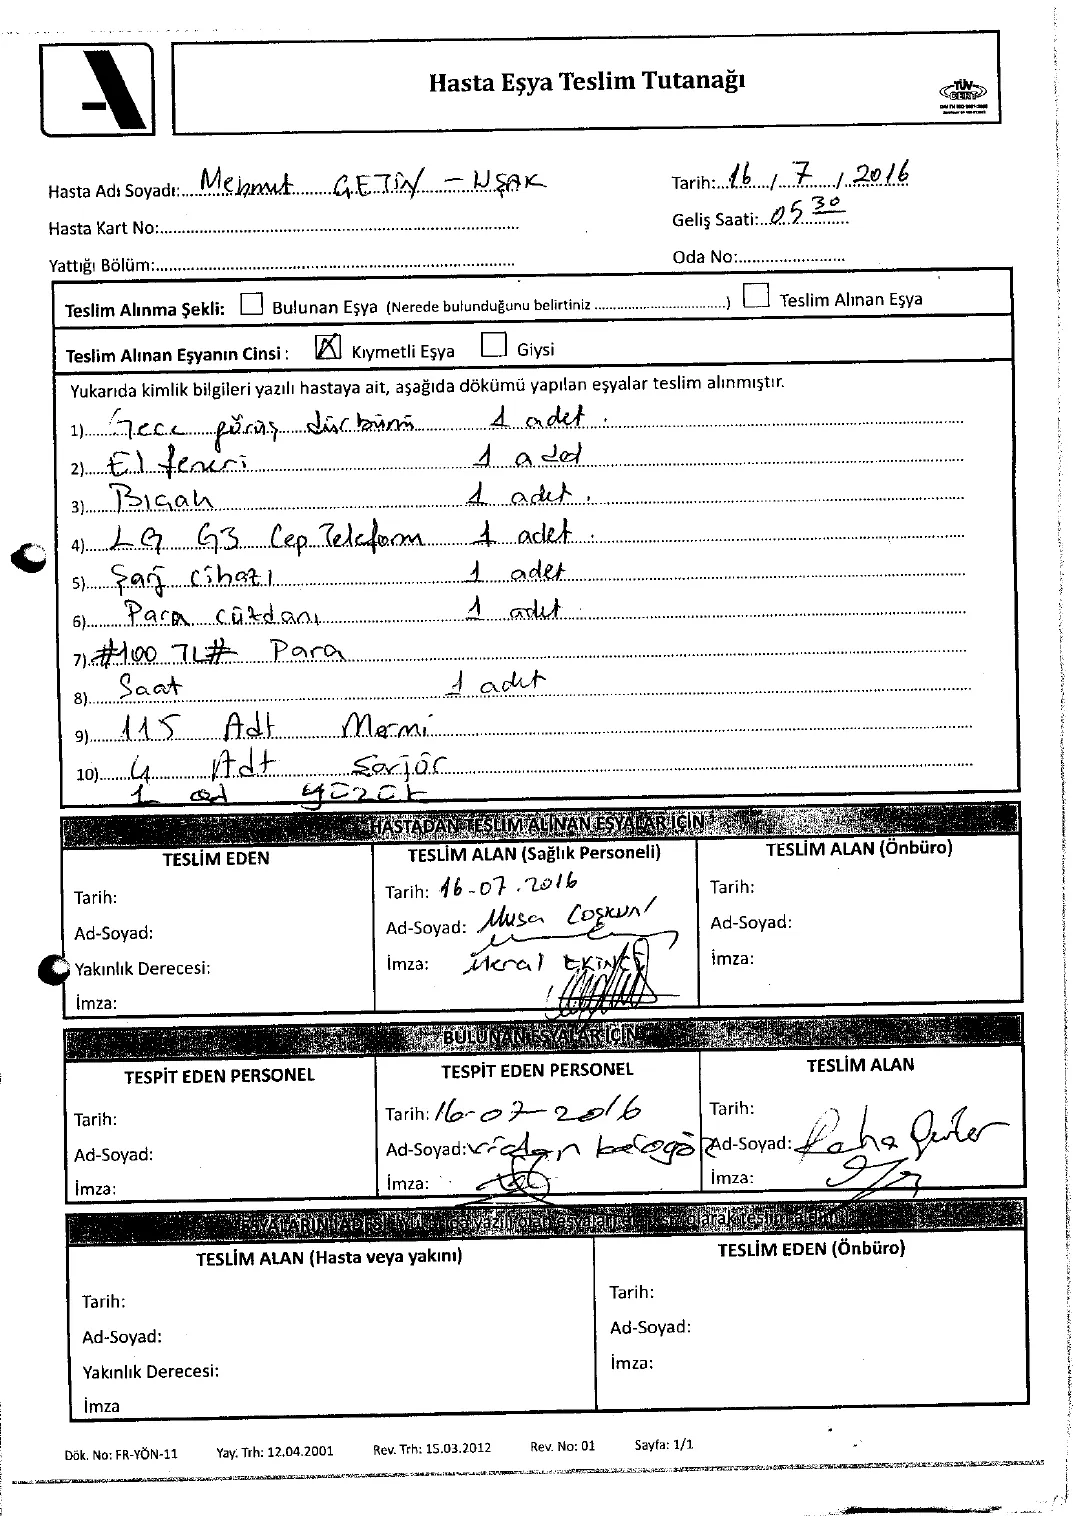 Hasta Eşya Teslim Tutanağı
TÜV
CERT
Hasta Adı Soyadı: Mehmut ÇETİN - UŞAK
Tarih: 16 / 7 / 2016
Hasta Kart No:
Geliş Saati: 05 30
Yattığı Bölüm:
Oda No:
Teslim Alınma Şekli: Bulunan Eşya (Nerede bulunduğunu belirtiniz ) Teslim Alınan Eşya
Teslim Alınan Eşyanın Cinsi : Kıymetli Eşya Giysi
Yukarıda kimlik bilgileri yazılı hastaya ait, aşağıda dökümü yapılan eşyalar teslim alınmıştır.
1) Gece görüş dürbünü 1 adet .
2) El feneri 1 adet
3) Bıçak 1 adet .
4) LG G3 Cep Telefonu 1 adet .
5) Şarj cihazı 1 adet
6) Para cüzdanı 1 adet .
7) #100 TL# Para
8) Saat 1 adet
9) 115 Adt Mermi
10) 4 Adt Sarjör
1 ad yüzük
HASTADAN TESLİM ALINAN EŞYALAR İÇİN
TESLİM EDEN
TESLİM ALAN (Sağlık Personeli)
TESLİM ALAN (Önbüro)
Tarih:
Tarih: 16-07.2016
Tarih:
Ad-Soyad:
Ad-Soyad: Musa Coşkun
Ad-Soyad:
Yakınlık Derecesi:
İmza: EKİNCİ
İmza:
İmza:
BULUNAN EŞYALAR İÇİN
TESPİT EDEN PERSONEL
TESPİT EDEN PERSONEL
TESLİM ALAN
Tarih:
Tarih: 16-07-2016
Tarih:
Ad-Soyad:
Ad-Soyad:
Ad-Soyad:
İmza:
İmza:
İmza:
TESLİM ALAN (Hasta veya yakını)
TESLİM EDEN (Önbüro)
Tarih:
Tarih:
Ad-Soyad:
Ad-Soyad:
Yakınlık Derecesi:
İmza:
İmza
Dök. No: FR-YÖN-11 Yay. Trh: 12.04.2001 Rev. Trh: 15.03.2012 Rev. No: 01 Sayfa: 1/1